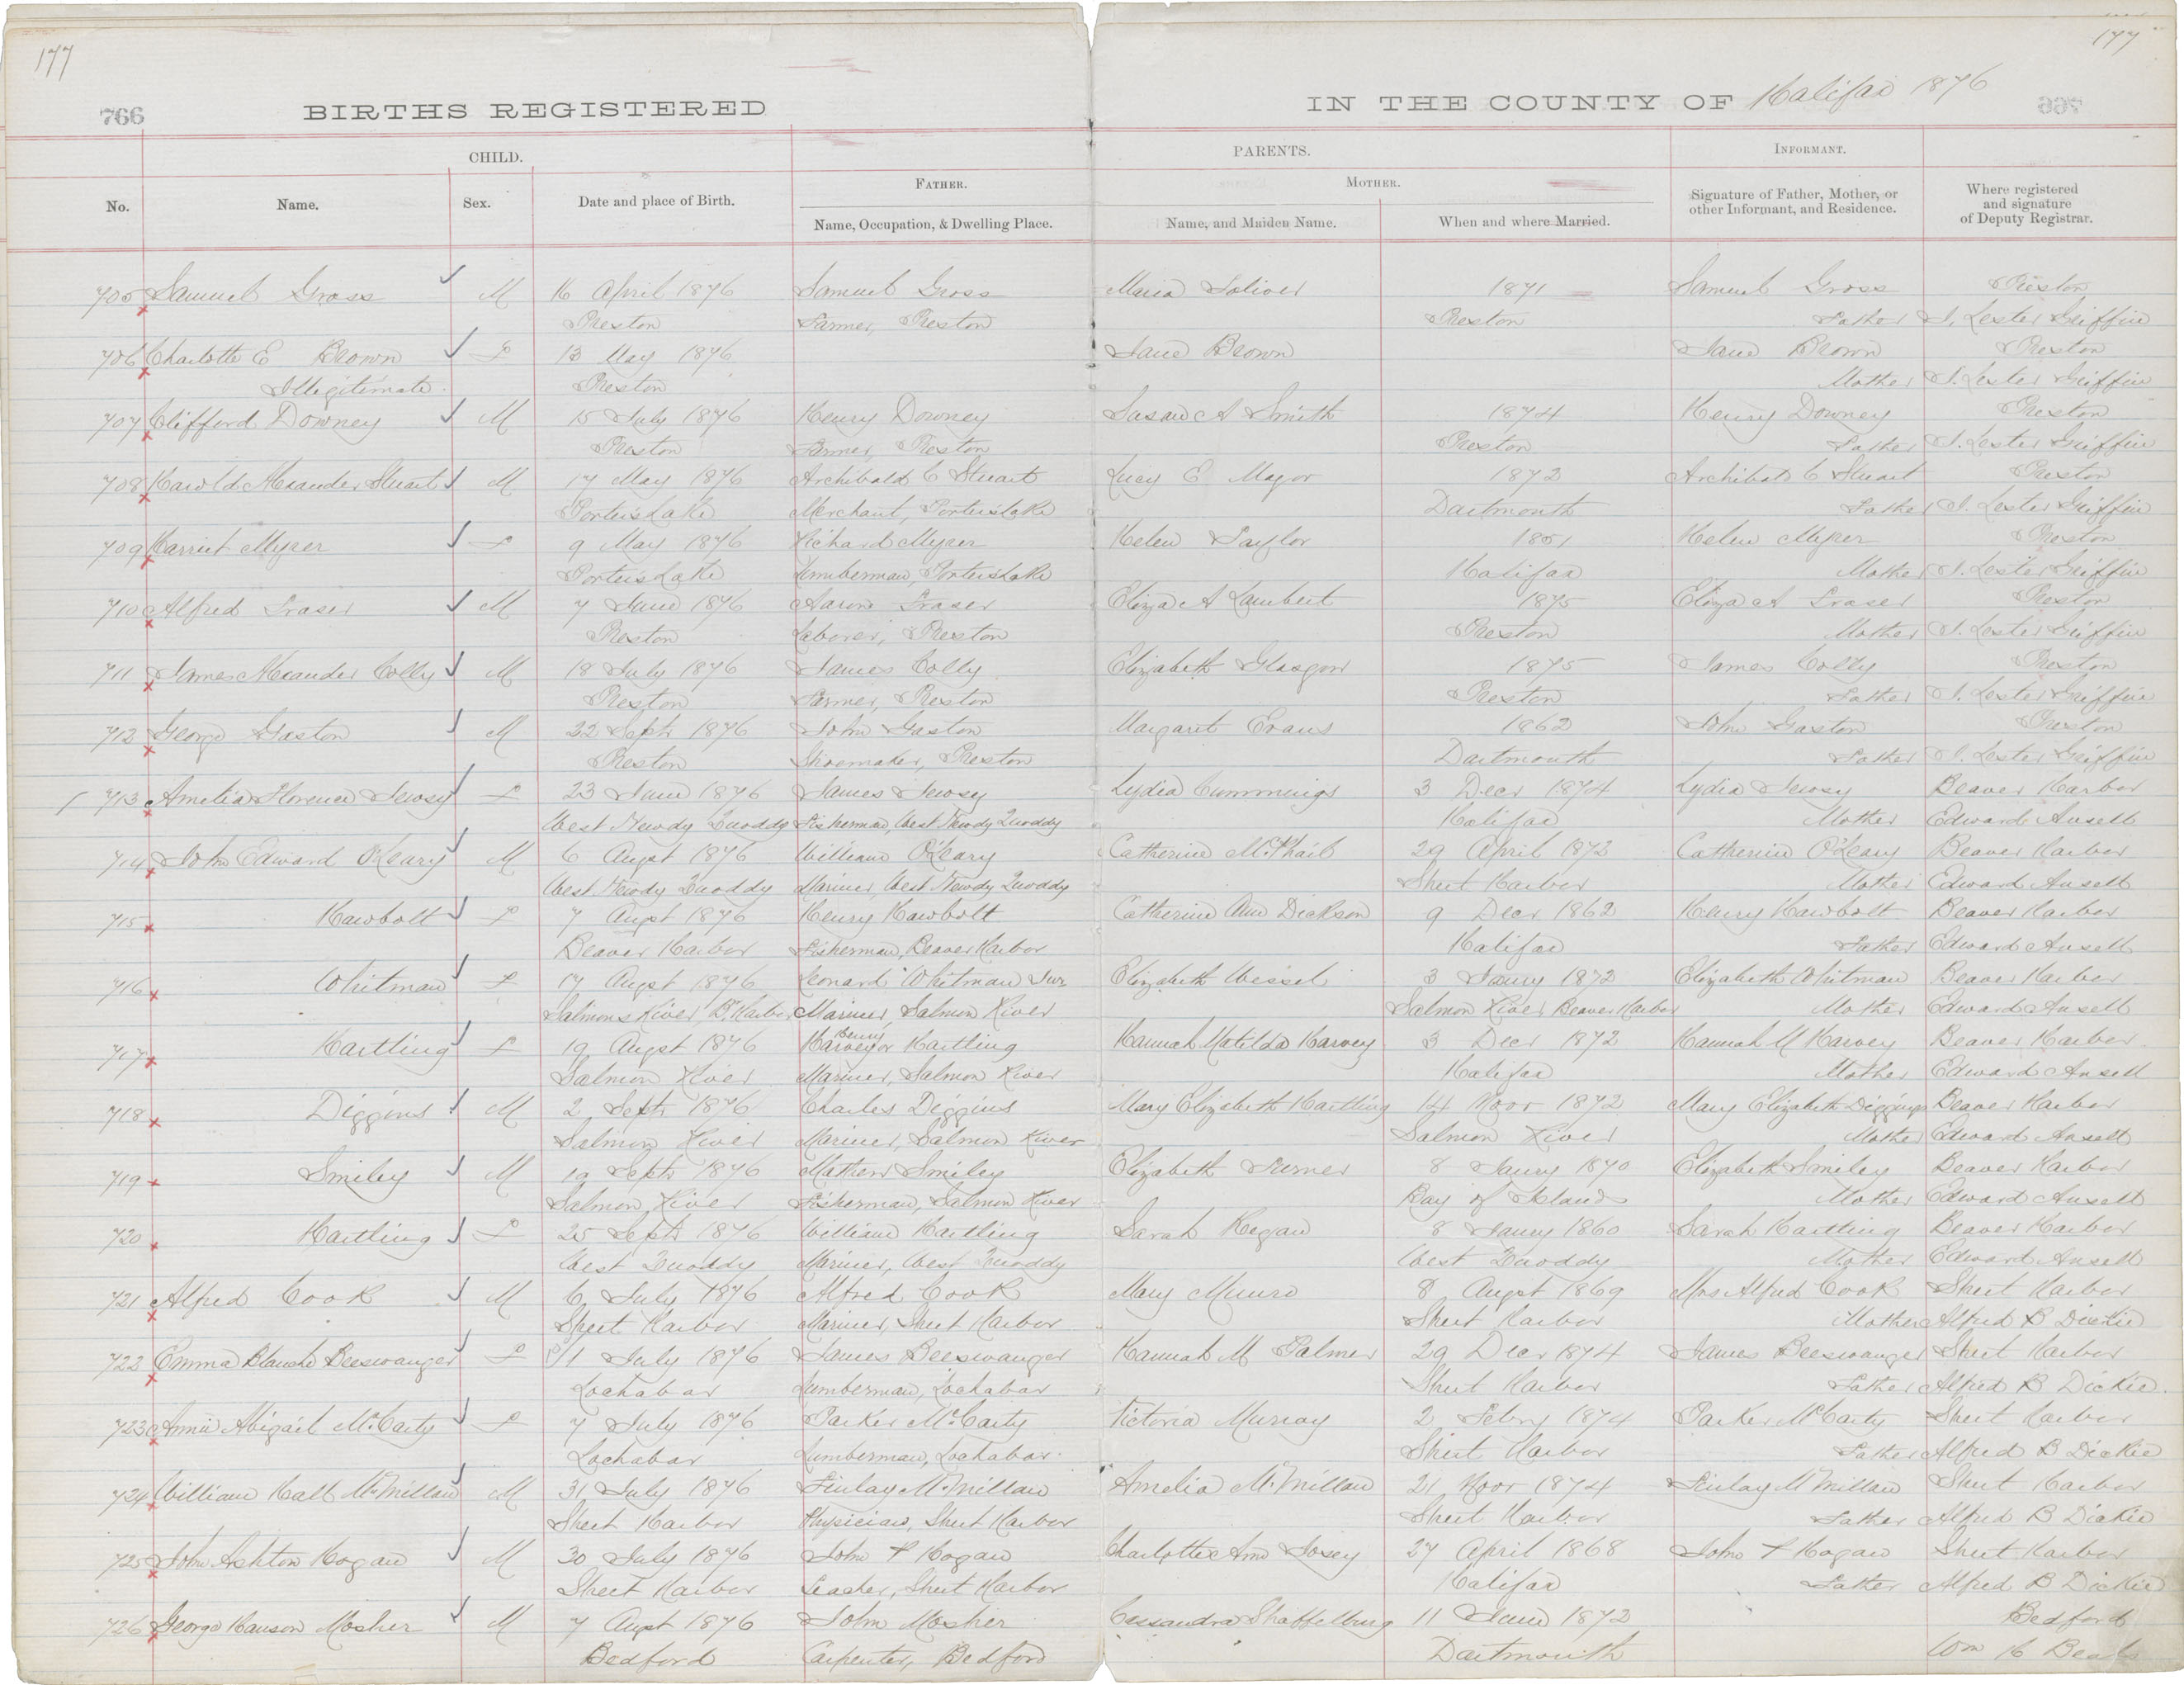 177 177
766 BIRTHS REGISTERED IN THE COUNTY OF Halifax 1876 766
CHILD. PARENTS. INFORMANT.
No. Name. Sex. Date and place of Birth. FATHER. MOTHER. Signature of Father, Mother, or other Informant, and Residence. Where registered and signature of Deputy Registrar.
Name, Occupation, & Dwelling Place. Name, and Maiden Name. When and where Married.
705 Samuel Gross M 16 April 1876 Samuel Gross Maria Toliver 1871 Samuel Gross Preston
Preston Farmer, Preston Preston Father I. Lester Griffin
706 Charlotte E Brown F 13 May 1876 Jane Brown Jane Brown Preston
Illegitimate Preston Mother I. Lester Griffin
707 Clifford Downey M 15 July 1876 Henry Downey Susan A Smith 1874 Henry Downey Preston
Preston Farmer, Preston Preston Father I. Lester Griffin
708 Harold Alexander Stuart M 17 May 1876 Archibald C Stuart Lucy E Major 1872 Archibald C Stuart Preston
Porters Lake Merchant, Porters Lake Dartmouth Father I. Lester Griffin
709 Harriet Myrer F 9 May 1876 Richard Myrer Helen Taylor 1851 Helen Myrer Preston
Porters Lake Lumberman, Porters Lake Halifax Mother I. Lester Griffin
710 Alfred Fraser M 7 June 1876 Aaron Fraser Eliza A Lambert 1875 Eliza A Fraser Preston
Preston Laborer, Preston Preston Mother I. Lester Griffin
711 James Alexander Colly M 18 July 1876 James Colly Elizabeth Glasgow 1875 James Colly Preston
Preston Farmer, Preston Preston Father I. Lester Griffin
712 George Gaston M 22 Septr 1876 John Gaston Margaret Evans 1862 John Gaston Preston
Preston Shoemaker, Preston Dartmouth Father I. Lester Griffin
713 Amelia Florence Jewsy F 23 June 1876 James Jewsy Lydia Cummings 3 Decr 1874 Lydia Jewsy Beaver Harbor
West Newdy Quoddy Fisherman, West Newdy Quoddy Halifax Mother Edward Ansell
714 John Edward O'Leary M 6 Augst 1876 William O'Leary Catherine McPhail 29 April 1872 Catherine O'Leary Beaver Harbor
West Newdy Quoddy Mariner, West Newdy Quoddy Sheet Harbor Mother Edward Ansell
715 Hawbolt F 7 Augst 1876 Henry Hawbolt Catherine Ann Dickson 9 Decr 1862 Henry Hawbolt Beaver Harbor
Beaver Harbor Fisherman, Beaver Harbor Halifax Father Edward Ansell
716 Whitman F 17 Augst 1876 Leonard Whitman Jur Elizabeth Wessel 3 Jany 1872 Elizabeth Whitman Beaver Harbor
Salmons River, Br Harbor Mariner, Salmon River Salmon River Beaver Harbor Mother Edward Ansell
717 Hartling F 19 Augst 1876 Harvey or Henry Hartling Hannah Matilda Harvey 3 Decr 1872 Hannah M Harvey Beaver Harbor
Salmon River Mariner, Salmon River Halifax Mother Edward Ansell
718 Diggins M 2 Septr 1876 Charles Diggins Mary Elizabeth Hartling 14 Novr 1872 Mary Elizabeth Diggings Beaver Harbor
Salmon River Mariner, Salmon River Salmon River Mother Edward Ansell
719 Smiley M 19 Septr 1876 Mathew Smiley Elizabeth Turner 8 Jany 1870 Elizabeth Smiley Beaver Harbor
Salmon River Fisherman, Salmon River Bay of Islands Mother Edward Ansell
720 Hartling F 25 Septr 1876 William Hartling Sarah Hogan 8 Jany 1860 Sarah Hartling Beaver Harbor
West Quoddy Mariner, West Quoddy West Quoddy Mother Edward Ansell
721 Alfred Cook M 6 July 1876 Alfred Cook Mary Munro 8 Augst 1869 Mrs Alfred Cook Sheet Harbor
Sheet Harbor Mariner, Sheet Harbor Sheet Harbor Mother Alfred B Dickie
722 Emma Blanche Beeswanger F 1 July 1876 James Beeswanger Hannah M Palmer 29 Decr 1874 James Beeswanger Sheet Harbor
Lochabar Lumberman, Lochabar Sheet Harbor Father Alfred B Dickie
723 Annie Abigail McCarty F 7 July 1876 Parker McCarty Victoria Murray 2 Febry 1874 Parker McCarty Sheet Harbor
Lochabar Lumberman, Lochabar Sheet Harbor Father Alfred B Dickie
724 William Hall McMillan M 31 July 1876 Finlay McMillan Amelia McMillan 21 Novr 1874 Finlay McMillan Sheet Harbor
Sheet Harbor Physician, Sheet Harbor Sheet Harbor Father Alfred B Dickie
725 John Ashton Hogan M 30 July 1876 John P Hogan Charlotte Ann Josey 27 April 1868 John P Hogan Sheet Harbor
Sheet Harbor Teacher, Sheet Harbor Halifax Father Alfred B Dickie
726 George Hanson Mosher M 7 Augst 1876 John Mosher Cassandra Shaffelburg 11 June 1872 Bedford
Bedford Carpenter, Bedford Dartmouth Wm H Beals